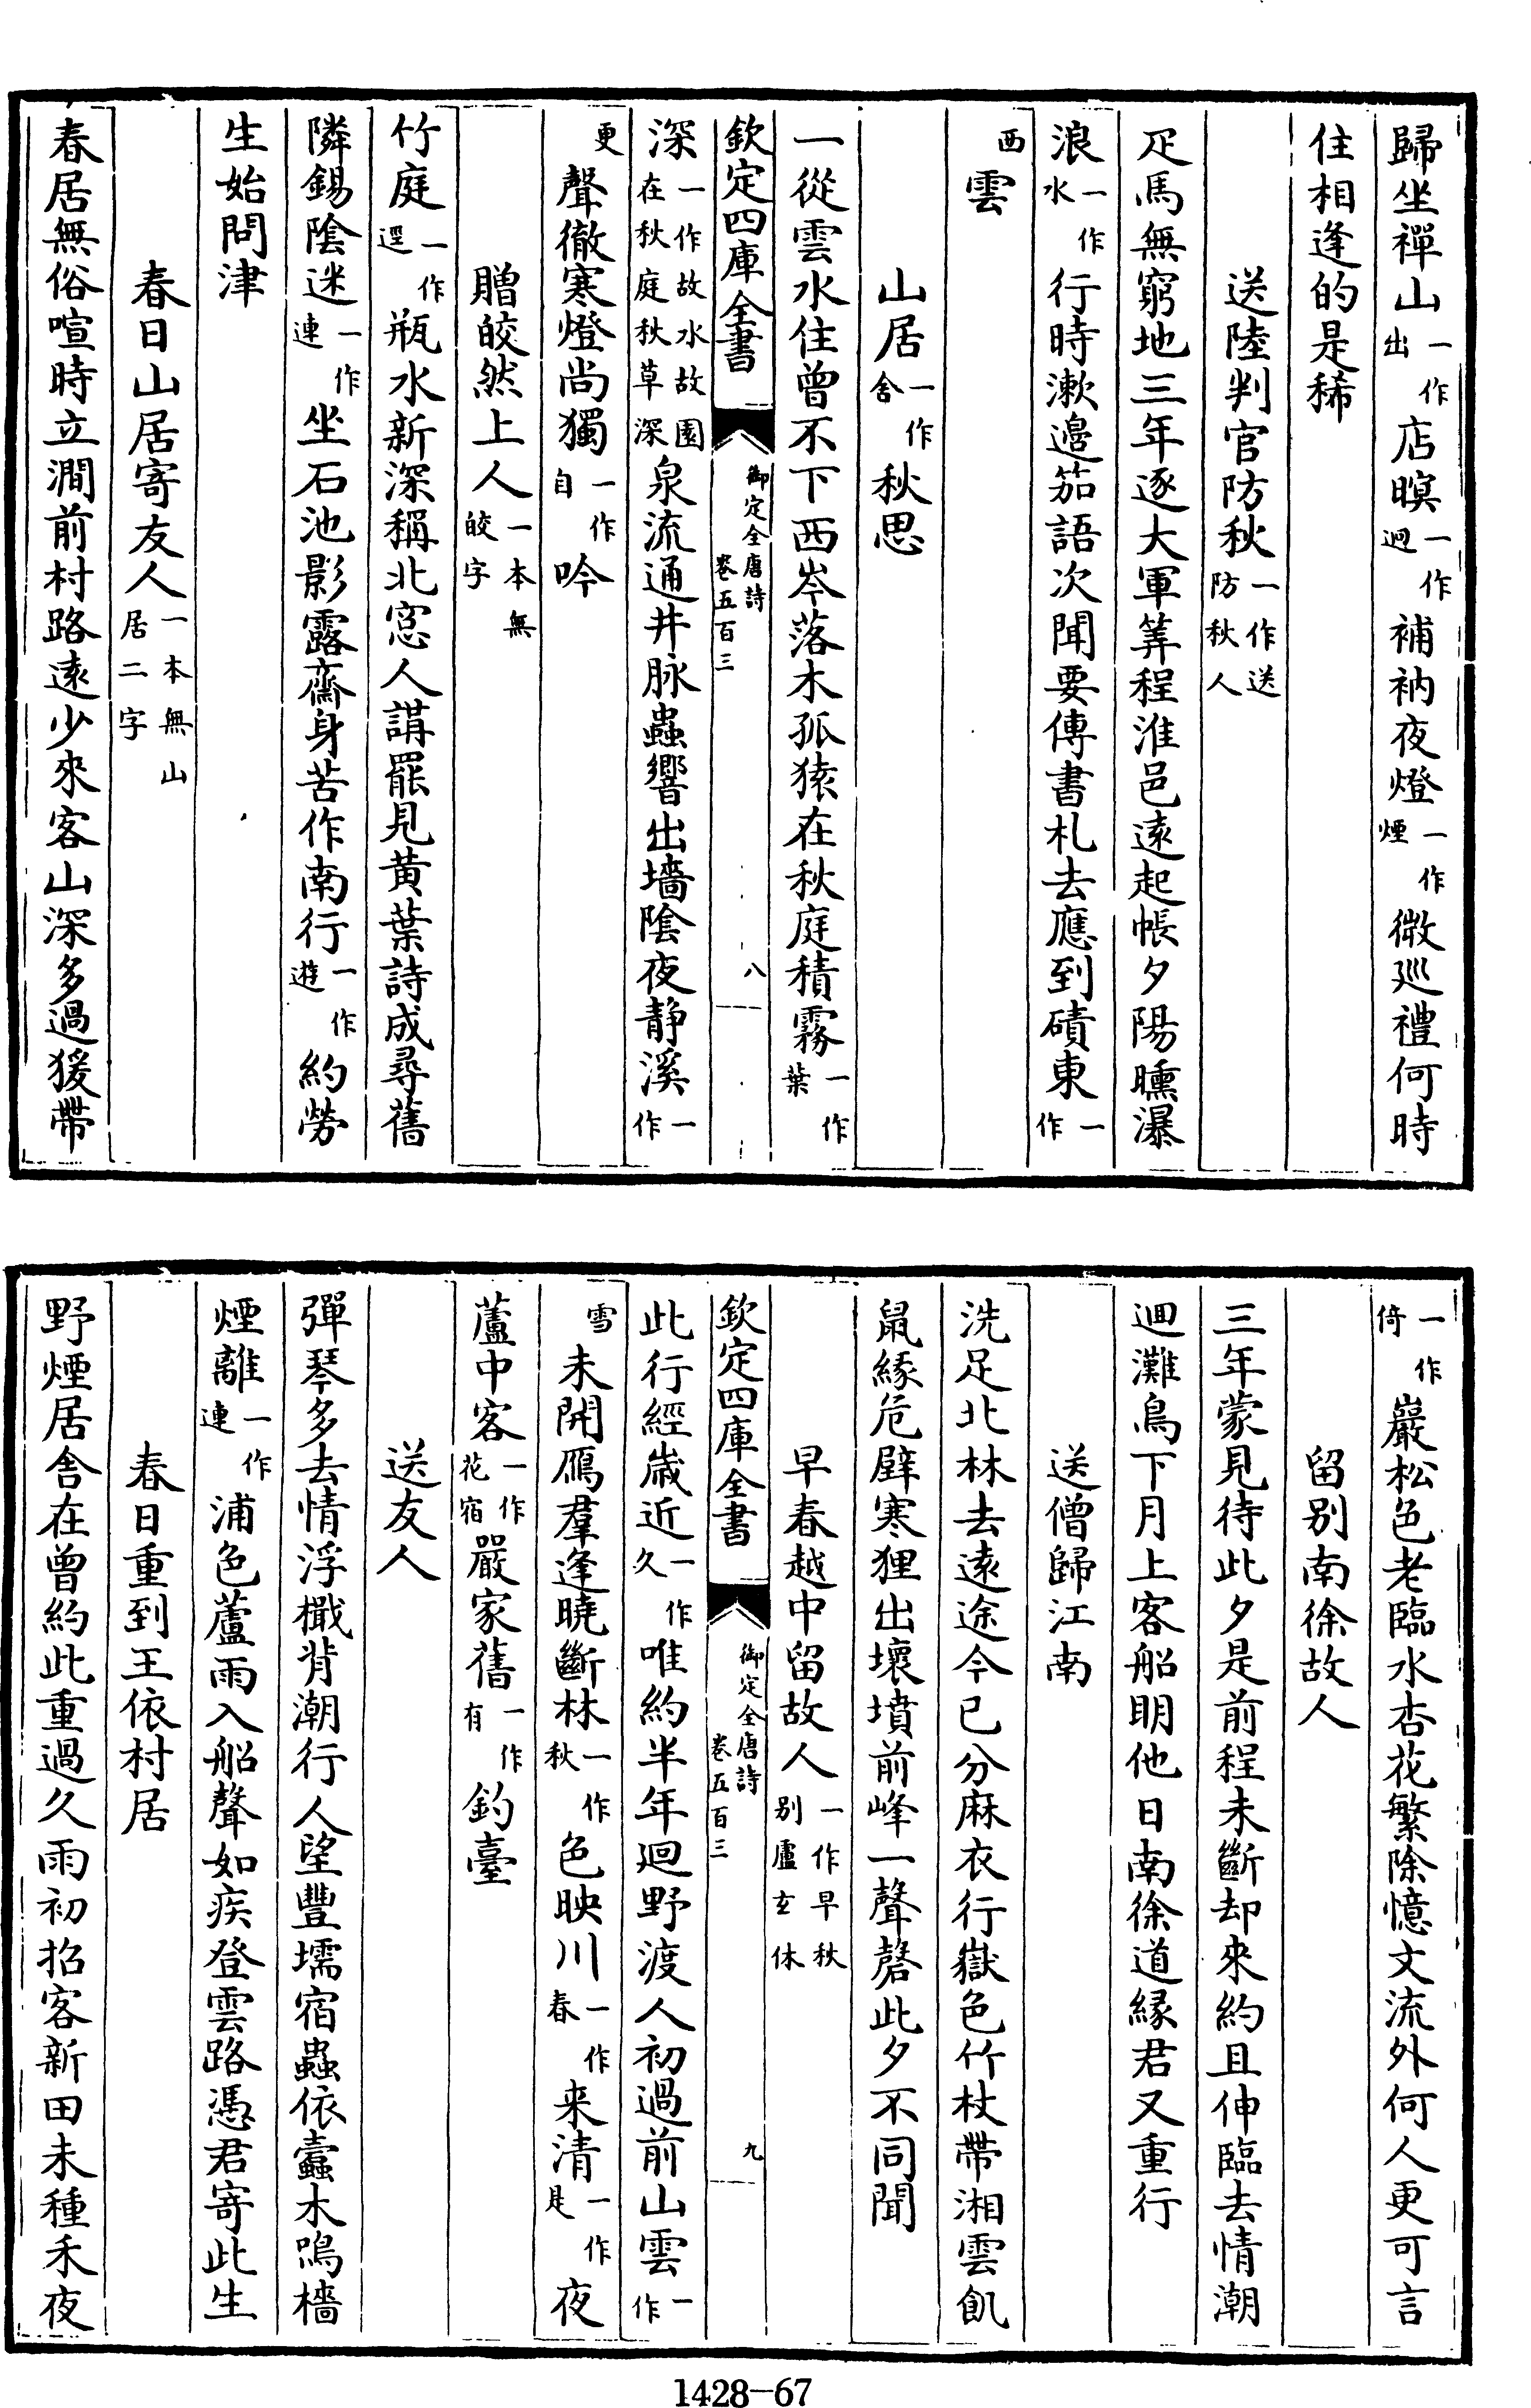 歸坐禪山一作出店暝一作迴補衲夜燈一作煙微巡禮何時
住相逢的是稀
送陸判官防秋一作送防秋人
疋馬無窮地三年逐大軍筭程淮邑遠起帳夕陽曛瀑
浪一作水行時漱邉笳語次聞要傳書札去應到磧東一作
西雲
山居一作舍秋思
一從雲水住曾不下西岑落木孤猿在秋庭積霧一作葉
欽定四庫全書 御定全唐詩卷五百三 八
深一作故水故園在秋庭秋草深泉流通井脉蟲響出墻陰夜靜溪一作
更聲徹寒燈尚獨一作自吟
贈皎然上人一本無皎字
竹庭一作逕瓶水新深稱北窓人講罷見黄葉詩成尋舊
隣錫陰迷一作連坐石池影露齋身苦作南行一作遊約勞
生始問津
春日山居寄友人一本無山居二字
春居無俗喧時立澗前村路遠少來客山深多過猨帶
一作倚巖松色老臨水杏花繁除憶文流外何人更可言
留别南徐故人
三年蒙見待此夕是前程未斷却來約且伸臨去情潮
迴灘鳥下月上客船明他日南徐道緣君又重行
送僧歸江南
洗足北林去遠途今已分麻衣行嶽色竹杖帶湘雲飢
鼠緣危壁寒狸出壞墳前峰一聲磬此夕不同聞
早春越中留故人一作早秋别盧玄休
欽定四庫全書 御定全唐詩卷五百三 九
此行經歲近一作久唯約半年迴野渡人初過前山雲一作
雪未開鴈羣逢曉斷林一作秋色映川一作春来清一作是夜
蘆中客一作花宿嚴家舊一作有釣臺
送友人
彈琴多去情浮檝背潮行人望豐壖宿蟲依蠹木鳴檣
煙離一作連浦色蘆雨入船聲如疾登雲路憑君寄此生
春日重到王依村居
野煙居舍在曾約此重過久雨初招客新田未種禾夜
1428-67